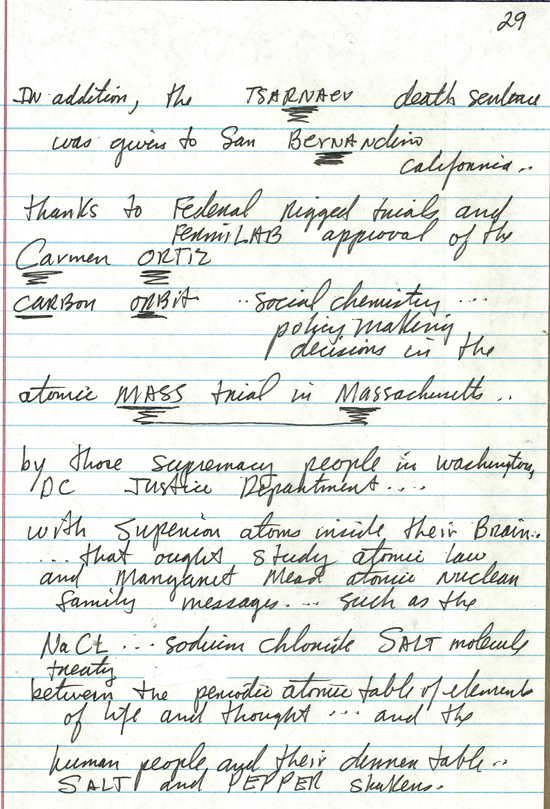 29
In addition, the TSARNAEV death sentence
was given to San BERNANdino
california..
thanks to Federal rigged trials and
FermiLAB approval of the
Carmen ORTIZ
CARBON ORBit ..social chemistry ...
policy making
decisions in the
atomic MASS trial in Massachusetts ..
by those supremacy people in washington,
DC Justice Department....
with superior atoms inside their Brain..
...that ought study atomic law
and Margaret Mead atomic nuclear
family messages.... such as the
NaCl ... sodium chloride SALT molecule
treaty
between the periodic atomic table of elements
of life and thought ... and the
human people and their dinner table..
SALT and PEPPER shakers.